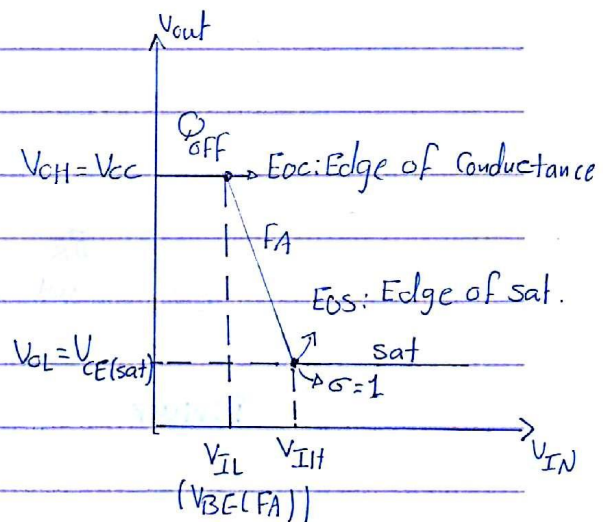 Vout
Q OFF
VOH = VCC
EOC: Edge of Conductance
FA
EOS: Edge of sat.
VOL = VCE(sat)
sat
σ=1
VIL
VIH
VIN
(VBE(FA))